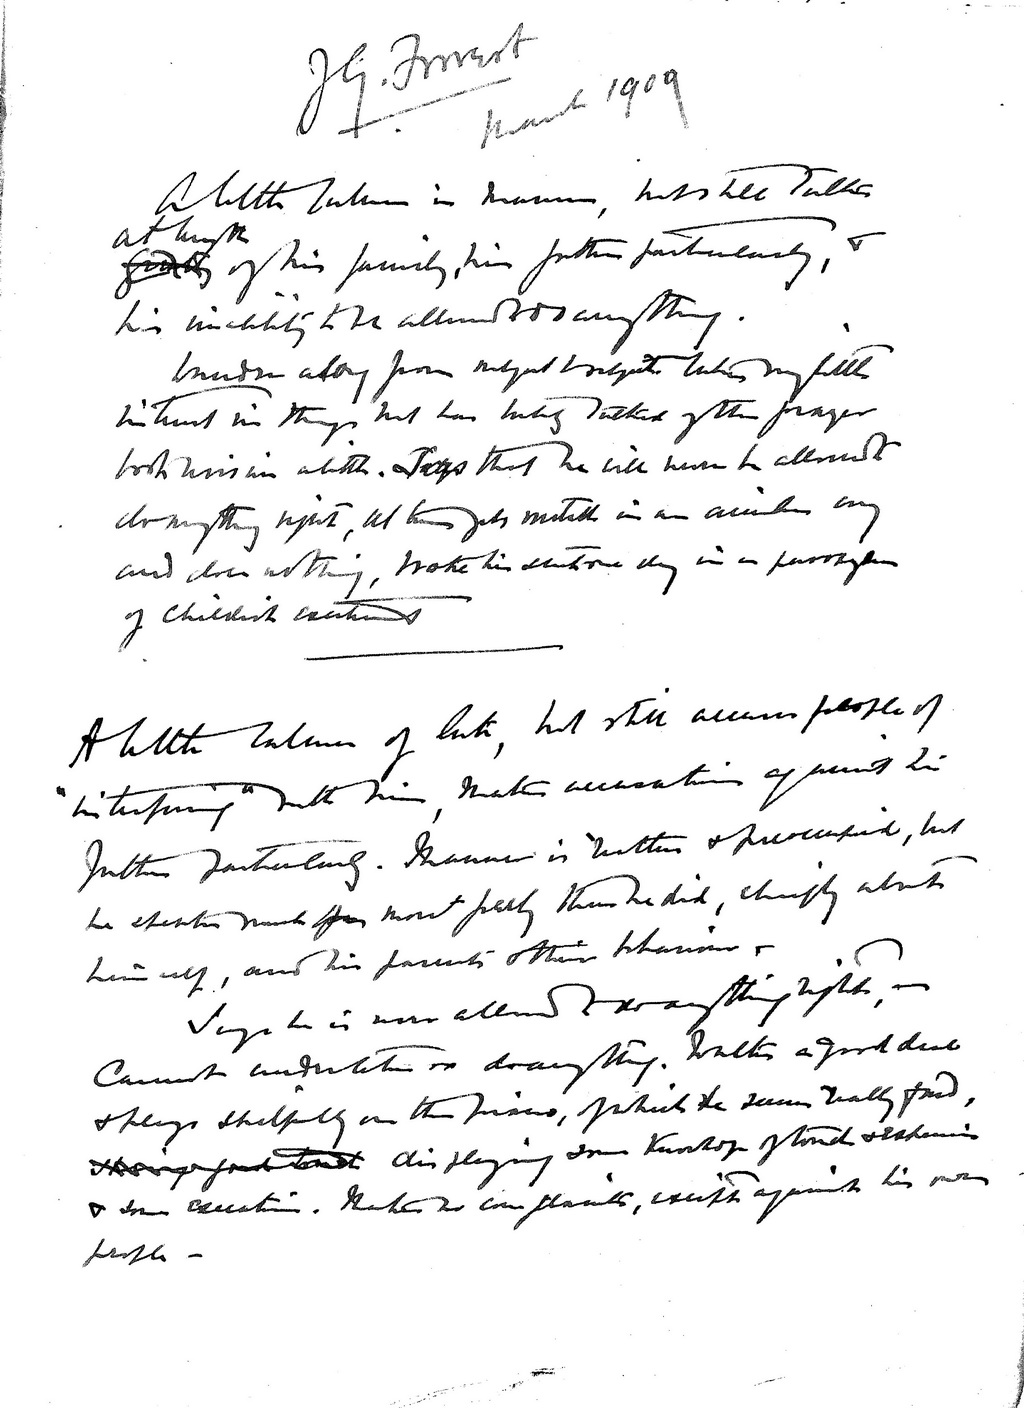 J G. Forrest
March 1909
A little calmer in manner, but still talks
at length
of his family, his father particularly, &
his inability to be allowed to do anything.
along from subject to subject takes very little
interest in things but has lately talked of the prayer
book a little. Says that he will never be allowed to
do anything right, at times gets in an way
and does nothing, broke his one day in a paroxysm
of childish excitement
A little calmer of late, but still accuses people of
"interfering" with him, makes accusations against his
father particularly. Manner is restless & preoccupied, but
he much more freely than he did, chiefly about
himself, and his parents & their behaviour.
Says he is never allowed to do anything right, or
cannot undertake or do anything. Walks a good deal
& plays skilfully on the piano, of which he seems really fond,
displaying some knowledge of touch & expression
& some execution. Makes no complaints, except against his own
people -